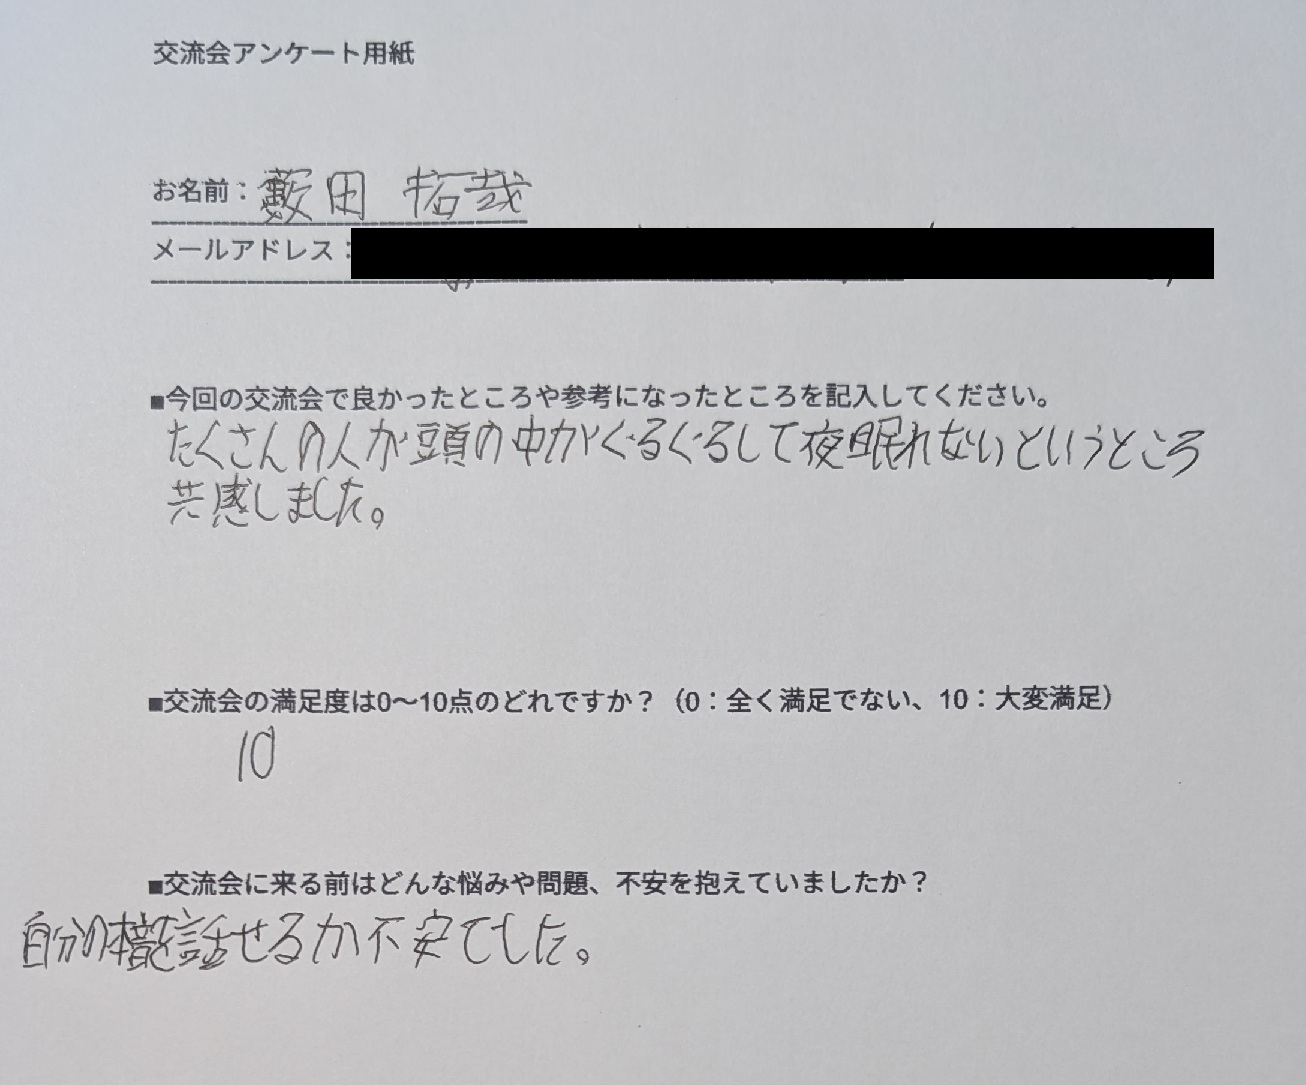 交流会アンケート用紙
お名前：藪田 拓哉
メールアドレス：
■今回の交流会で良かったところや参考になったところを記入してください。
たくさんの人が頭の中がぐるぐるして夜眠れないというところ
共感しました。
■交流会の満足度は0～10点のどれですか？（0：全く満足でない、10：大変満足）
10
■交流会に来る前はどんな悩みや問題、不安を抱えていましたか？
自分の本音を話せるか不安でした。